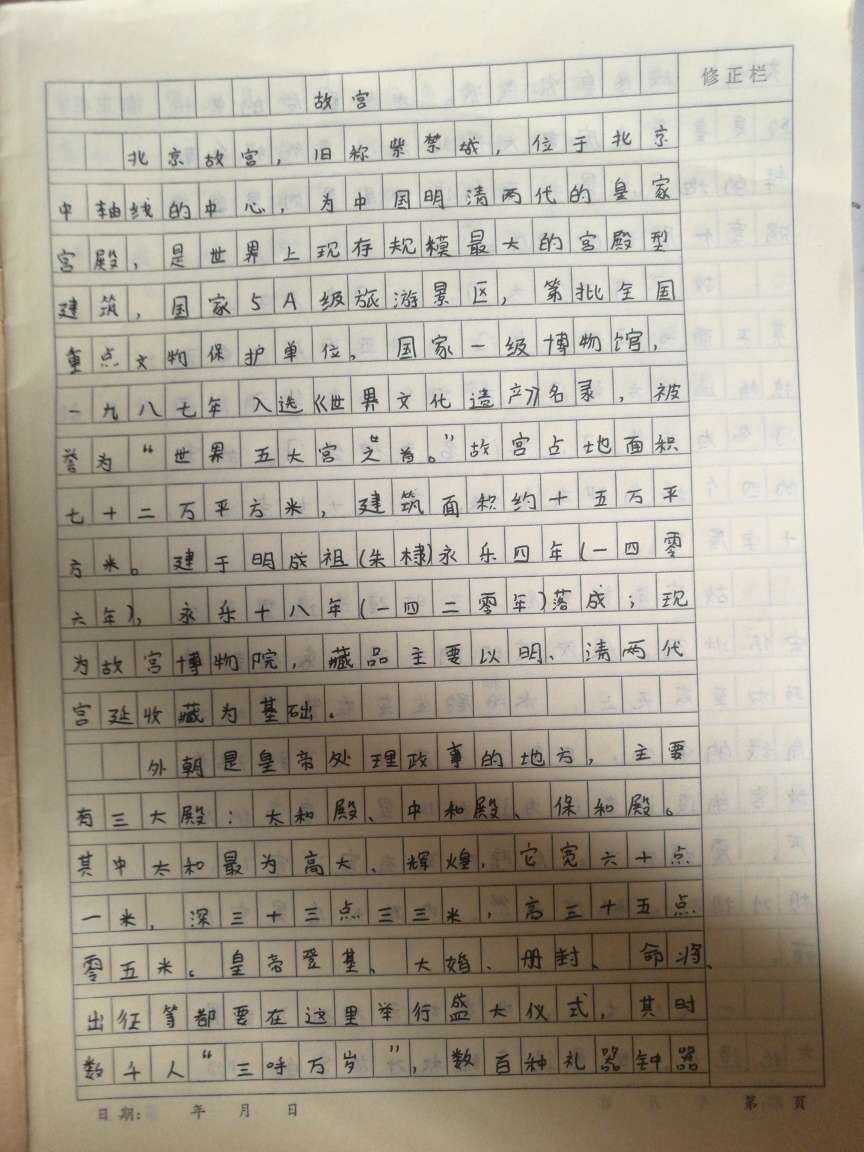 修正栏
故宫
北京故宫，旧称紫禁城，位于北京
中轴线的中心，为中国明清两代的皇家
宫殿，是世界上现存规模最大的宫殿型
建筑，国家5A级旅游景区，第批全国
重点文物保护单位。国家一级博物馆，
一九八七年入选《世界文化遗产》名录，被
誉为“世界五大宫之首。”故宫占地面积
七十二万平方米，建筑面积约十五万平
方米。建于明成祖(朱棣)永乐四年(一四零
六年)，永乐十八年(一四二零年)落成；现
为故宫博物院，藏品主要以明、清两代
宫廷收藏为基础．
外朝是皇帝处理政事的地方，主要
有三大殿：太和殿、中和殿、保和殿。
其中太和最为高大、辉煌，它宽六十点
一米，深三十三点三三米，高三十五点
零五米。皇帝登基、大婚、册封、命将、
出征等都要在这里举行盛大仪式，其时
数千人“三呼万岁”，数百种礼器钟器
日期: 年 月 日 第 页